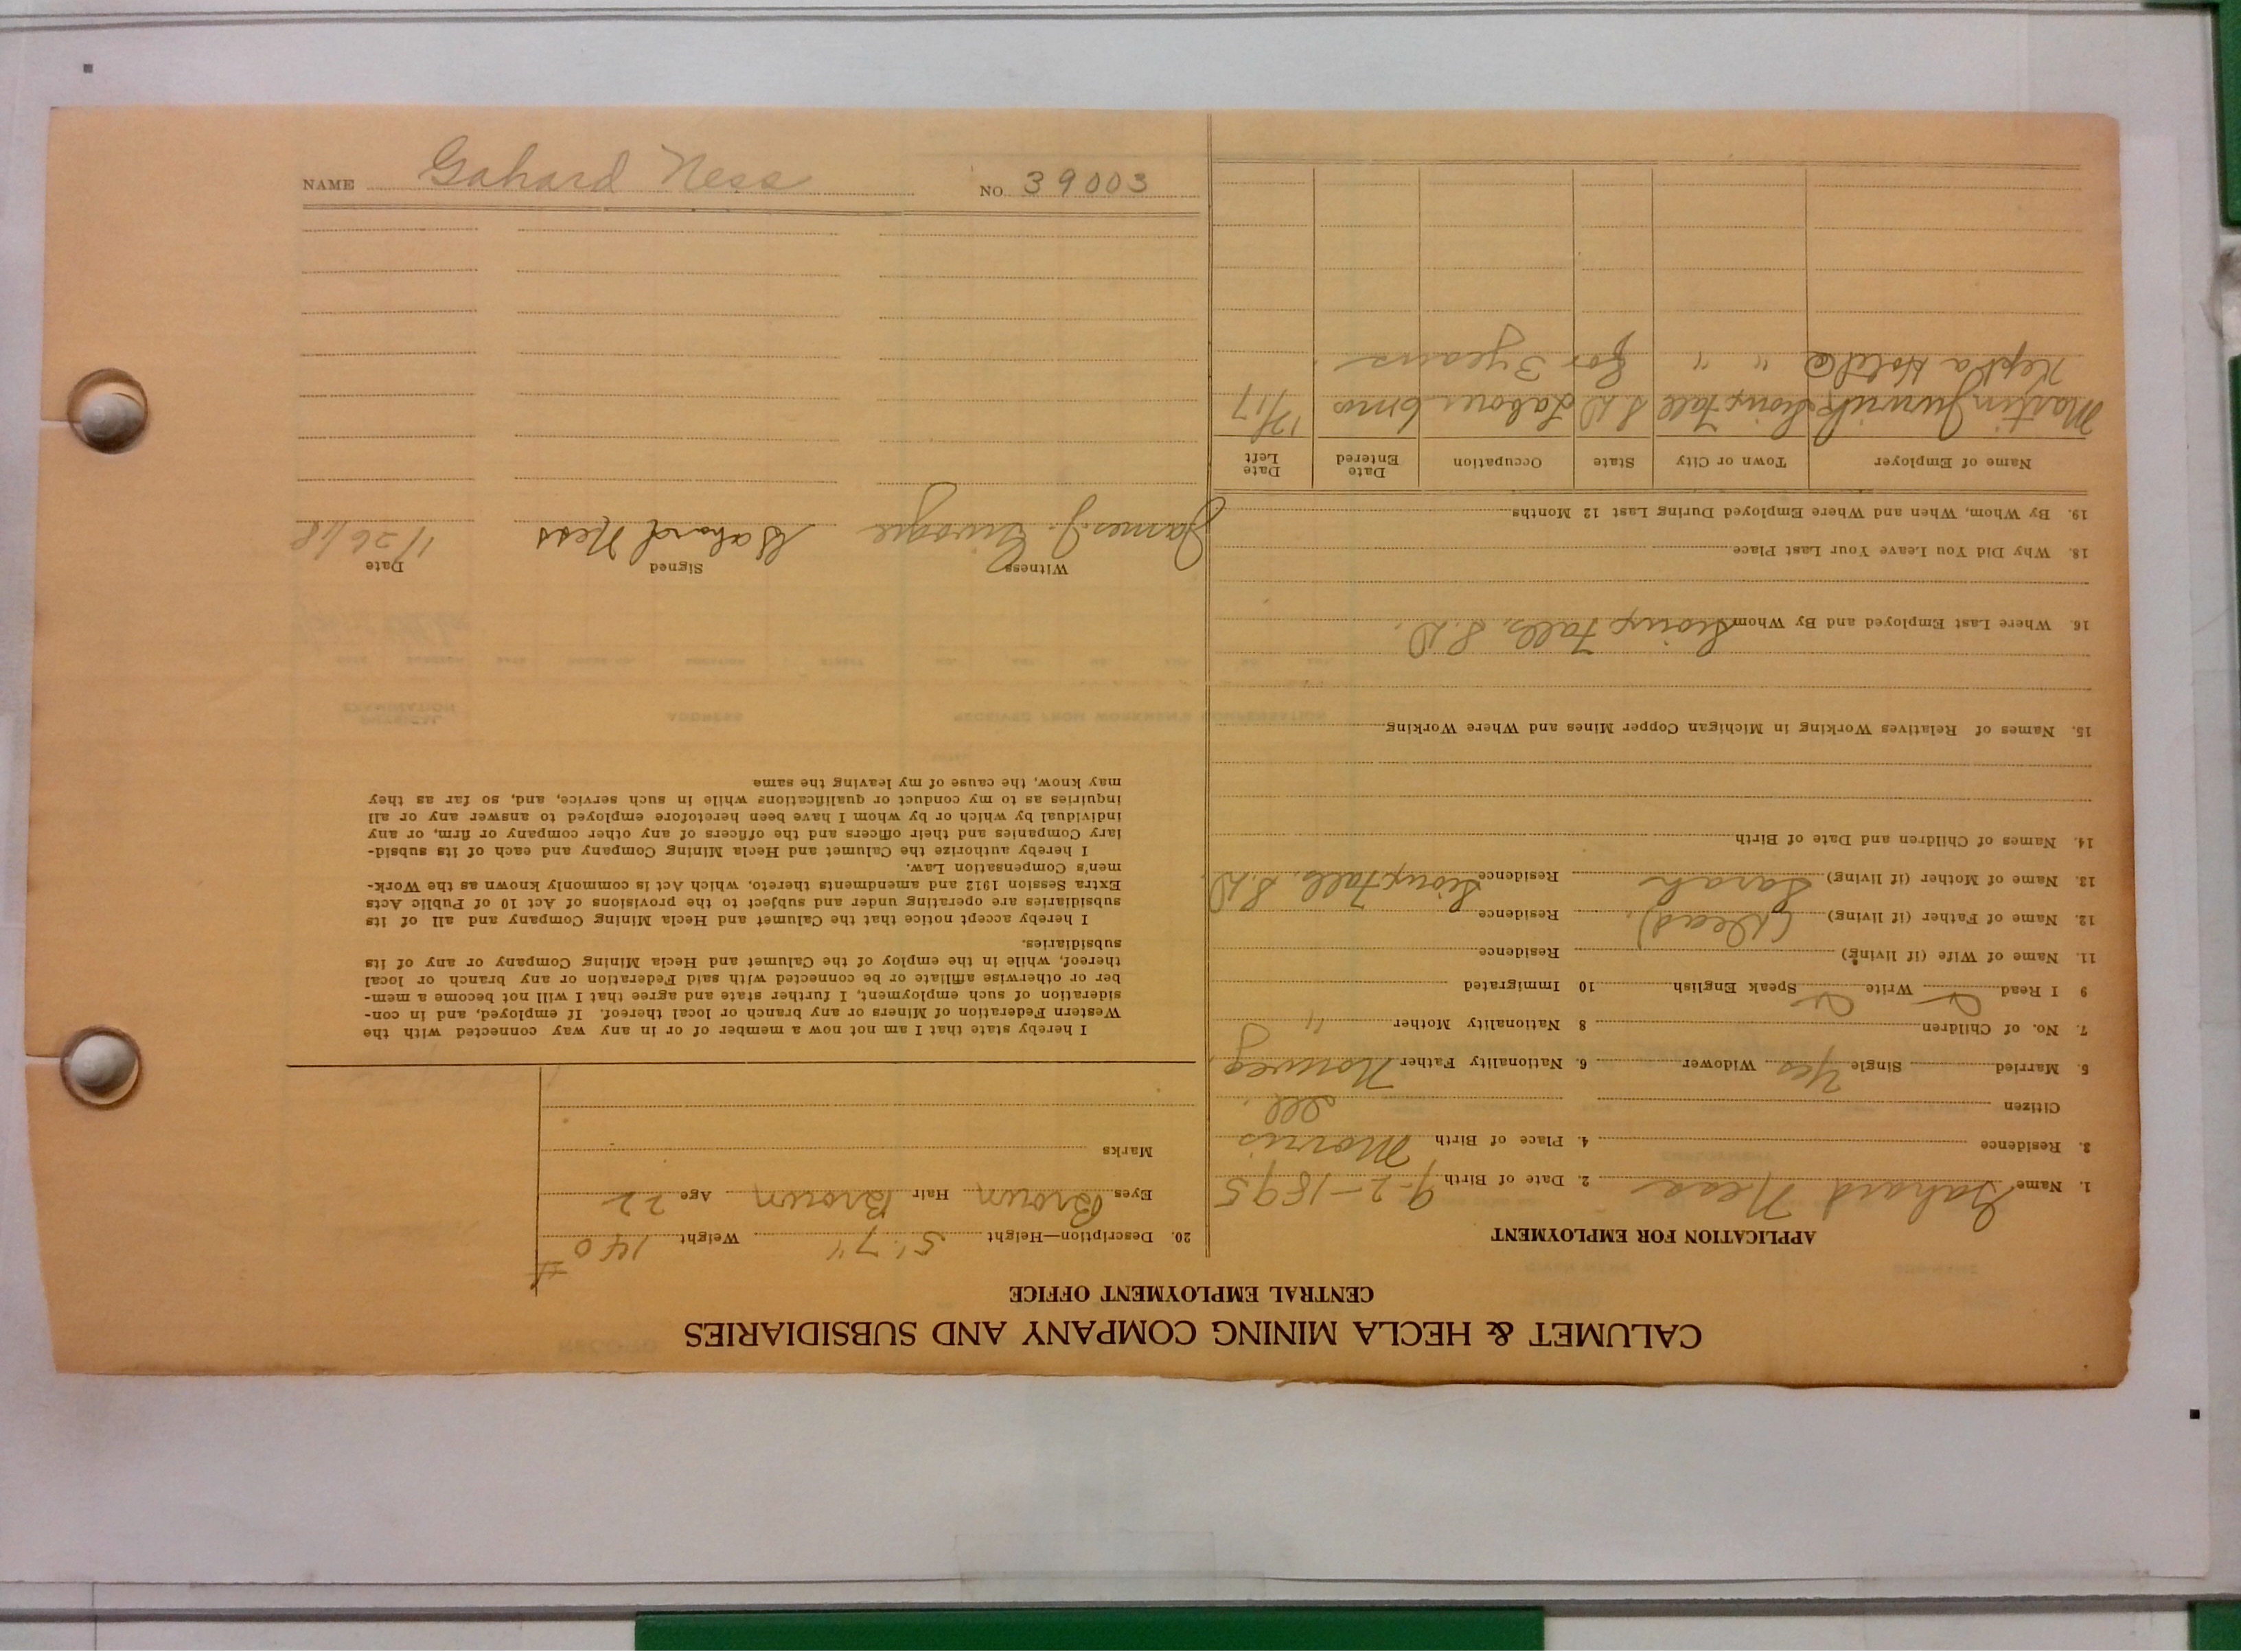 CALUMET & HECLA MINING COMPANY AND SUBSIDIARIES
CENTRAL EMPLOYMENT OFFICE
APPLICATION FOR EMPLOYMENT
1. Name Gahard Ness 2. Date of Birth 9-2-1895
3. Residence 4. Place of Birth Morris
Citizen Ill.
5. Married Single Yes Widower 6. Nationality Father Norweg
7. No. of Children 8 Nationality Mother "
9 I Read Write Speak English 10 Immigrated
11. Name of Wife (if living) Residence
12. Name of Father (if living) (Dead) Residence
13. Name of Mother (if living) Sarah Residence Sioux Falls, S.D.
14. Names of Children and Date of Birth
15. Names of Relatives Working in Michigan Copper Mines and Where Working
16. Where Last Employed and By Whom Sioux Falls, S.D.
18. Why Did You Leave Your Last Place
19. By Whom, When and Where Employed During Last 12 Months
Name of Employer Town or City State Occupation Date Entered Date Left
Martin Sioux Fall S.D Laborer 6 mos 12/17
Kept a Hotel @ " " for 3 years
20. Description—Height 5' 7" Weight 140 #
Eyes Brown Hair Brown Age 22
Marks
I hereby state that I am not now a member of or in any way connected with the
Western Federation of Miners or any branch or local thereof. If employed, and in con-
sideration of such employment, I further state and agree that I will not become a mem-
ber or otherwise affiliate or be connected with said Federation or any branch or local
thereof, while in the employ of the Calumet and Hecla Mining Company or any of its
subsidiaries.
I hereby accept notice that the Calumet and Hecla Mining Company and all of its
subsidiaries are operating under and subject to the provisions of Act 10 of Public Acts
Extra Session 1912 and amendments thereto, which Act is commonly known as the Work-
men's Compensation Law.
I hereby authorize the Calumet and Hecla Mining Company and each of its subsid-
iary Companies and their officers and the officers of any other company or firm, or any
individual by which or by whom I have been heretofore employed to answer any or all
inquiries as to my conduct or qualifications while in such service, and, so far as they
may know, the cause of my leaving the same
Witness Signed Date
James J. Gahard Ness 1/26/18
NAME Gahard Ness NO. 39003